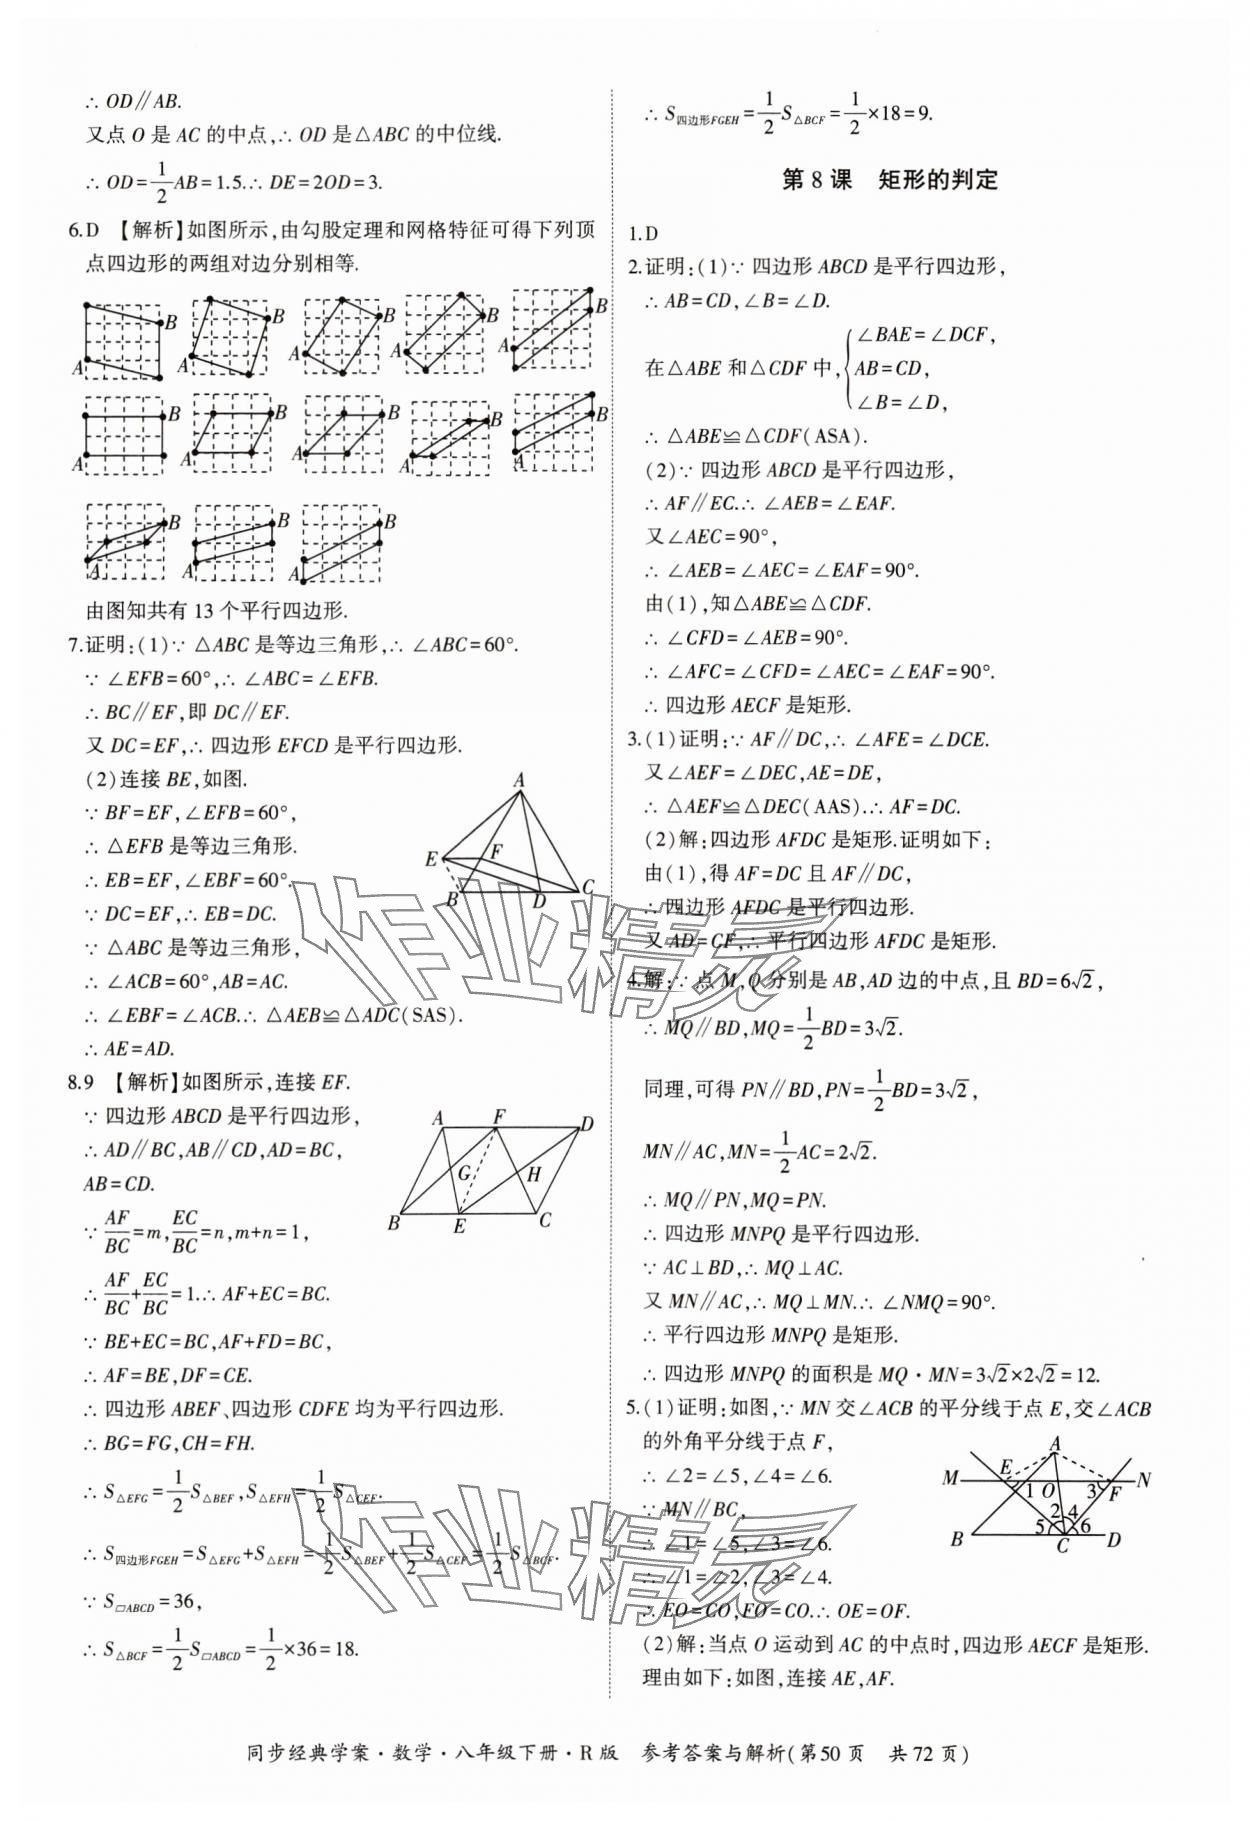 ∴ OD∥AB.
又点 O 是 AC 的中点,∴ OD 是△ABC 的中位线.
∴ OD=1/2AB=1.5.∴ DE=2OD=3.
6.D 【解析】如图所示,由勾股定理和网格特征可得下列顶
点四边形的两组对边分别相等.
A B A B A B A B A B
A B A B A B A B A B
A B A B A B
由图知共有 13 个平行四边形.
7.证明:(1)∵ △ABC 是等边三角形,∴ ∠ABC=60°.
∵ ∠EFB=60°,∴ ∠ABC=∠EFB.
∴ BC∥EF,即 DC∥EF.
又 DC=EF,∴ 四边形 EFCD 是平行四边形.
(2)连接 BE,如图.
∵ BF=EF,∠EFB=60°,
∴ △EFB 是等边三角形.
∴ EB=EF,∠EBF=60°.
∵ DC=EF,∴ EB=DC.
∵ △ABC 是等边三角形,
∴ ∠ACB=60°,AB=AC.
∴ ∠EBF=∠ACB.∴ △AEB≌△ADC(SAS).
∴ AE=AD.
A
E F
B D C
8.9 【解析】如图所示,连接 EF.
∵ 四边形 ABCD 是平行四边形,
∴ AD∥BC,AB∥CD,AD=BC,
AB=CD.
∵ AF/BC=m,EC/BC=n,m+n=1,
∴ AF/BC+EC/BC=1.∴ AF+EC=BC.
∵ BE+EC=BC,AF+FD=BC,
∴ AF=BE,DF=CE.
∴ 四边形 ABEF、四边形 CDFE 均为平行四边形.
∴ BG=FG,CH=FH.
∴ S△EFG=1/2S△BEF,S△EFH=1/2S△CEF.
∴ S四边形FGEH=S△EFG+S△EFH=1/2S△BEF+1/2S△CEF=1/2S△BCF.
∵ S▱ABCD=36,
∴ S△BCF=1/2S▱ABCD=1/2×36=18.
A F D
G H
B E C
∴ S四边形FGEH=1/2S△BCF=1/2×18=9.
第 8 课 矩形的判定
1.D
2.证明:(1)∵ 四边形 ABCD 是平行四边形,
∴ AB=CD,∠B=∠D.
在△ABE 和△CDF 中,{∠BAE=∠DCF,
AB=CD,
∠B=∠D,
∴ △ABE≌△CDF(ASA).
(2)∵ 四边形 ABCD 是平行四边形,
∴ AF∥EC.∴ ∠AEB=∠EAF.
又∠AEC=90°,
∴ ∠AEB=∠AEC=∠EAF=90°.
由(1),知△ABE≌△CDF.
∴ ∠CFD=∠AEB=90°.
∴ ∠AFC=∠CFD=∠AEC=∠EAF=90°.
∴ 四边形 AECF 是矩形.
3.(1)证明:∵ AF∥DC,∴ ∠AFE=∠DCE.
又∠AEF=∠DEC,AE=DE,
∴ △AEF≌△DEC(AAS).∴ AF=DC.
(2)解:四边形 AFDC 是矩形.证明如下:
由(1),得 AF=DC 且 AF∥DC,
∴ 四边形 AFDC 是平行四边形.
又 AD=CF,∴ 平行四边形 AFDC 是矩形.
4.解:∵ 点 M,Q 分别是 AB,AD 边的中点,且 BD=6√2,
∴ MQ∥BD,MQ=1/2BD=3√2.
同理,可得 PN∥BD,PN=1/2BD=3√2,
MN∥AC,MN=1/2AC=2√2.
∴ MQ∥PN,MQ=PN.
∴ 四边形 MNPQ 是平行四边形.
∵ AC⊥BD,∴ MQ⊥AC.
又 MN∥AC,∴ MQ⊥MN.∴ ∠NMQ=90°.
∴ 平行四边形 MNPQ 是矩形.
∴ 四边形 MNPQ 的面积是 MQ·MN=3√2×2√2=12.
5.(1)证明:如图,∵ MN 交∠ACB 的平分线于点 E,交∠ACB
的外角平分线于点 F,
∴ ∠2=∠5,∠4=∠6.
∵ MN∥BC,
∴ ∠1=∠5,∠3=∠6.
∴ ∠1=∠2,∠3=∠4.
∴ EO=CO,FO=CO.∴ OE=OF.
(2)解:当点 O 运动到 AC 的中点时,四边形 AECF 是矩形.
理由如下:如图,连接 AE,AF.
A
M E N
1 O 3 F
2 4
5 6
B C D
同步经典学案·数学·八年级下册·R 版 参考答案与解析(第 50 页 共 72 页)
作业精灵
作业精灵